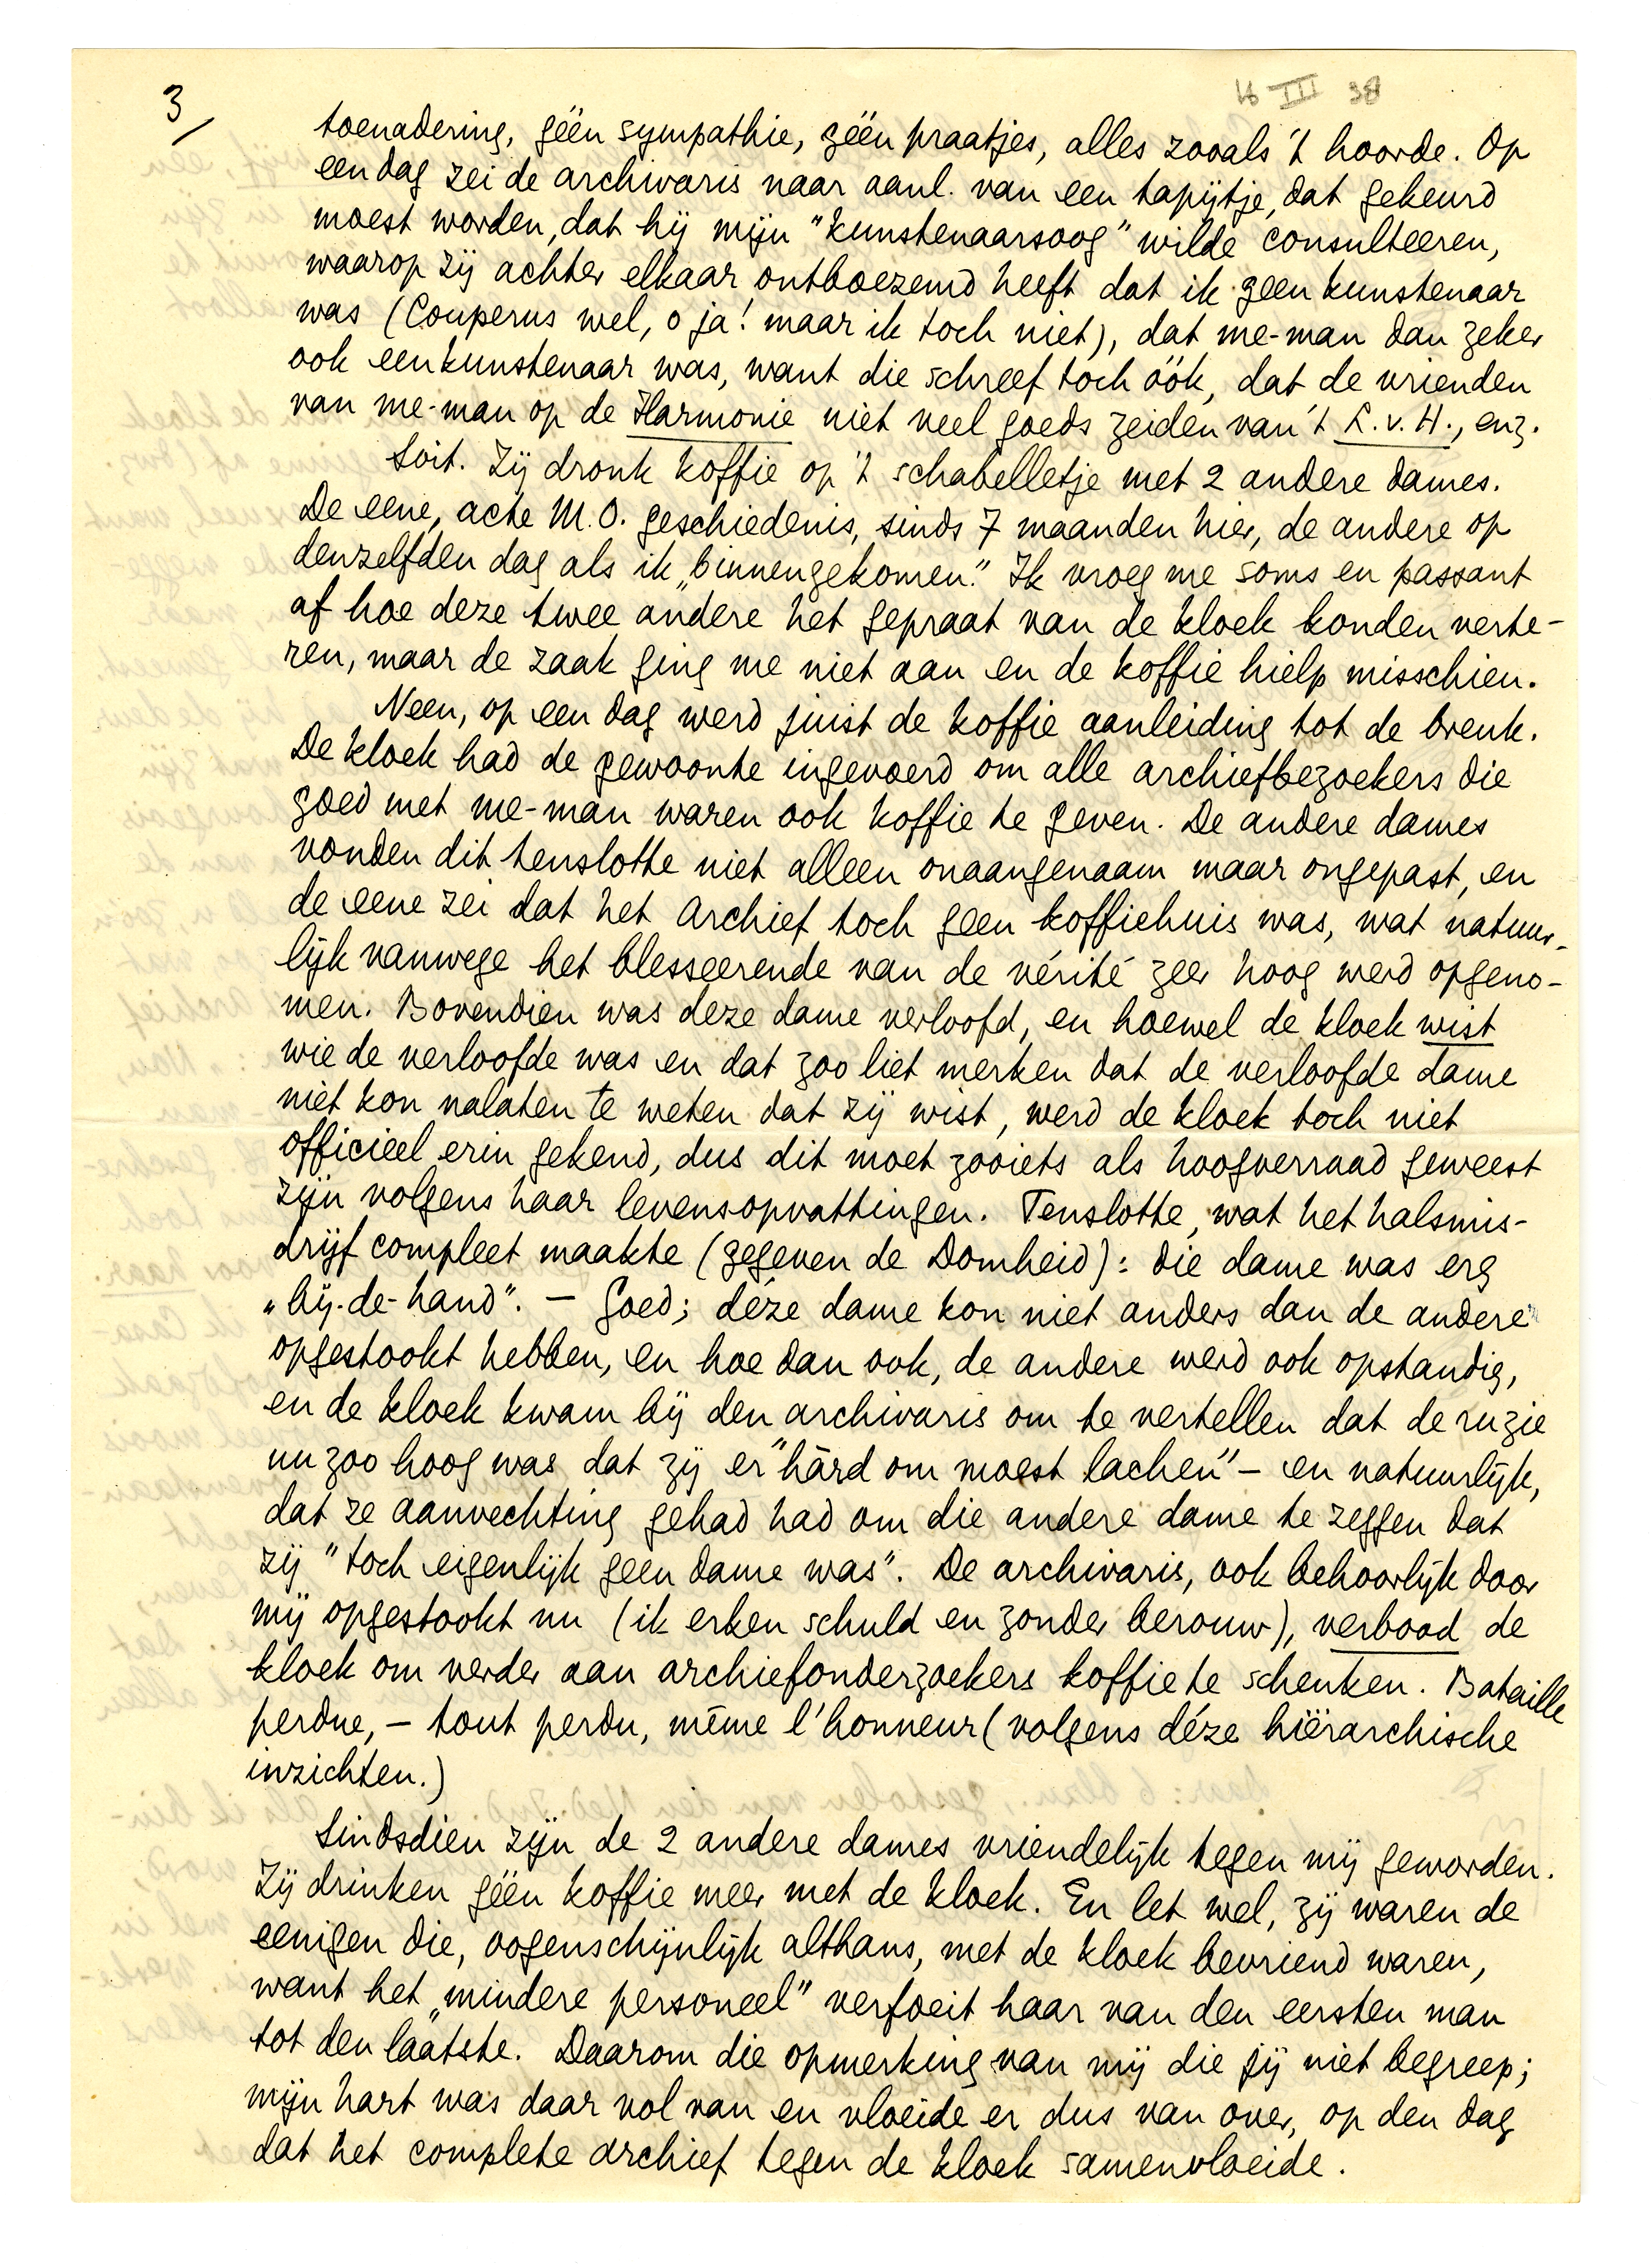 16 III 38
3/
toenadering, géén sympathie, géén praatjes, alles zooals 't hoorde. Op
een dag zei de archivaris naar aanl. van een tapijtje, dat gekeurd
moest worden, dat hij mijn "kunstenaarsoog" wilde consulteeren,
waarop zij achter elkaar ontboezemd heeft dat ik geen kunstenaar
was (Couperus wel, o ja! maar ik toch niet), dat me-man dan zeker
ook een kunstenaar was, want die schreef toch óók, dat de vrienden
van me-man op de Harmonie niet veel goeds zeiden van 't L. v. H., enz.
Soit. Zij dronk koffie op 't schabelletje met 2 andere dames.
De eene, acte M.O. geschiedenis, sinds 7 maanden hier, de andere op
denzelfden dag als ik „binnengekomen". Ik vroeg me soms en passant
af hoe deze twee andere het gepraat van de kloek konden verte-
ren, maar de zaak ging me niet aan en de koffie hielp misschien.
Neen, op een dag werd juist de koffie aanleiding tot de breuk.
De kloek had de gewoonte ingevoerd om alle archiefbezoekers die
goed met me-man waren ook koffie te geven. De andere dames
vonden dit tenslotte niet alleen onaangenaam maar ongepast, en
de eene zei dat het Archief toch geen koffiehuis was, wat natuur-
lijk vanwege het blesseerende van de vérité zeer hoog werd opgeno-
men. Bovendien was deze dame verloofd, en hoewel de kloek wist
wie de verloofde was en dat zoo liet merken dat de verloofde dame
niet kon nalaten te weten dat zij wist, werd de kloek toch niet
officieel erin gekend, dus dit moet zooiets als hoogverraad geweest
zijn volgens haar levensopvattingen. Tenslotte, wat het halsmis-
drijf compleet maakte (gegeven de Domheid): die dame was erg
„bij-de-hand". — Goed; déze dame kon niet anders dan de andere
opgestookt hebben, en hoe dan ook, de andere werd ook opstandig,
en de kloek kwam bij den archivaris om te vertellen dat de ruzie
nu zoo hoog was dat zij er "hàrd om moest lachen" — en natuurlijk,
dat ze aanvechting gehad had om die andere dame te zeggen dat
zij "toch eigenlijk geen dame was". De archivaris, ook behoorlijk door
mij opgestookt nu (ik erken schuld en zonder berouw), verbood de
kloek om verder aan archiefonderzoekers koffie te schenken. Bataille
perdue, — tout perdu, même l'honneur (volgens déze hiërarchische
inzichten.)
Sindsdien zijn de 2 andere dames vriendelijk tegen mij geworden.
Zij drinken géén koffie meer met de kloek. En let wel, zij waren de
eenigen die, oogenschijnlijk althans, met de kloek bevriend waren,
want het „mindere personeel" verfoeit haar van den eersten man
tot den láátste. Daarom die opmerking van mij die jij niet begreep;
mijn hart was daar vol van en vloeide er dus van over, op den dag
dat het complete archief tegen de kloek samenvloeide.